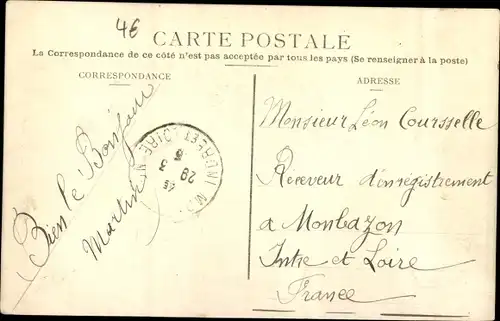 4€
CARTE POSTALE
La Correspondance de ce côté n'est pas acceptée par tous les pays (Se renseigner à la poste)
CORRESPONDANCE
ADRESSE
Bien le Bonjour
Martin
INDRE ET LOIRE
29
Monsieur Léon Coursselle
Receveur d'enregistrement
a Monbazon
Intre et Loire
France